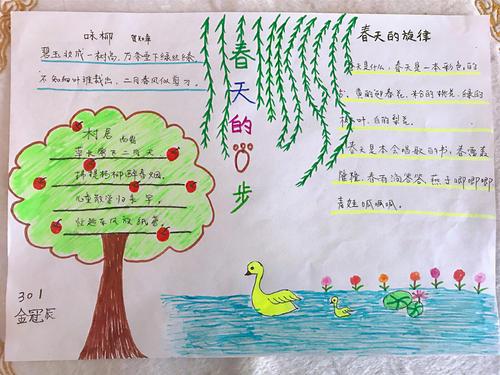 咏柳 贺知章
碧玉妆成一树高,万条垂下绿丝绦。
不知细叶谁裁出,二月春风似剪刀。
春天的步
村居
草长莺飞二月天
拂堤杨柳醉春烟。
儿童散学归来早,
忙趁东风放纸鸢。
春天的旋律
春天是什么,春天是一本彩色的
书,黄的迎春花,粉的桃花,绿的
柳叶,白的梨花。
春天是本会唱歌的书,春雷轰
隆隆,春雨滴答答,燕子唧唧唧
青蛙呱呱呱。
301